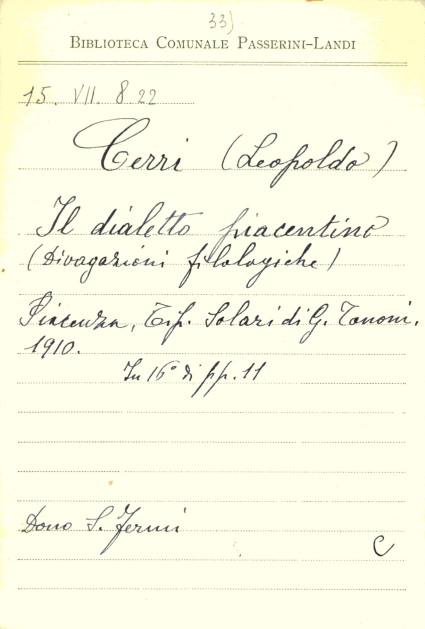 33)
BIBLIOTECA COMUNALE PASSERINI-LANDI
15. VII. 8 22
Cerri (Leopoldo)
Il dialetto piacentino
(Divagazioni filologiche)
Piacenza, Tip. Solari di G. Tononi.
1910.
In 16° di pp. 11
Dono S. Fermi
C